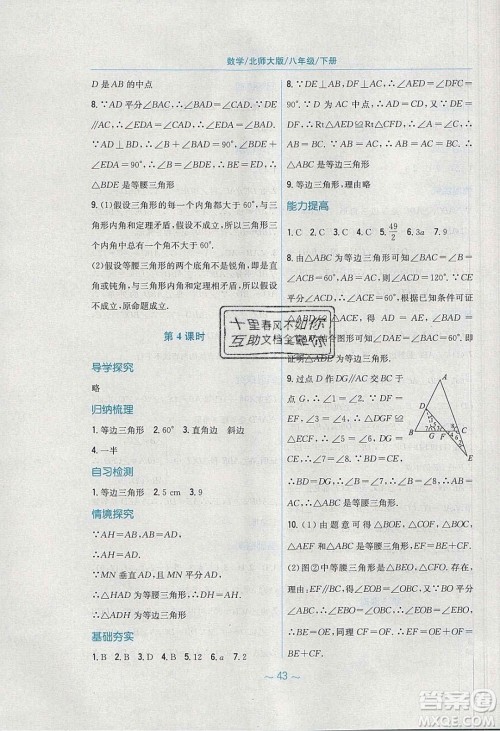 数学/北师大版/八年级/下册
D 是 AB 的中点
8. ∵AD 平分∠BAC,∴∠BAD=∠CAD.
∵∠EDA=∠CAD,∴∠EDA=∠BAD.
∵AD⊥BD,∴∠B+∠BAD=90°,∠BDE+
∠EDA=90°,∴∠B=∠BDE,∴BE=DE,
∴△BDE 为等腰三角形
9. (1)假设三角形的每一个内角都大于 60°,与三
角形内角和定理矛盾,假设不成立,所以三角形
中至少有一个内角不大于 60°.
(2)假设等腰三角形的两个底角不是锐角,即是直
角或钝角,与三角形内角和定理矛盾,假设不
成立,原命题成立.
第 4 课时
导学探究
略
归纳梳理
1. 等边三角形 2. 60° 3. 直角边 斜边
4. 一半
自习检测
1. 等边三角形 2. 5 cm 3. 9
情境探究
∵AH=AB,AB=AD,
∴AH=AD,
∴△HAD 为等腰三角形.
∵MN 垂直且平分 AD,
∴AH=DH.
∴△HAD 为等边三角形
基础夯实
1. B 2. B 3. D 4. A 5. A 6. a 7. 2
8. ∵DE⊥AB,DF⊥AC,∴∠BED=∠CFD
=90°.∵D 为 AC 中点,∴BD=CD.又∵DE
=DF,∴Rt△BED≌Rt△CFD,∴∠B=∠C,
∴AB=AC.∵∠A=60°,∴△ABC 是等边三
角形
9. 等边三角形,理由略
能力提高
1. C 2. C 3. C 4. C 5. 49/2 6. 3a 7. 9
8. 由△ABC 是等边三角形可得 AB=AC,
∠ABE+∠CBF=60°,
可证得
△ADE 是等边三角形.
9. 过点 D 作 DG∥AC 交 BC
∴∠DGF=∠ECF,
∠E.
EF,∴△DFG≌
△EFC,∴GD=CE.∵BD=
CE,∴BD=GD,∴∠B=
∠DGB,∴∠B=∠ACB,∴
△ABC 为等腰三角形.
10. (1)由题意可得△BOE,△COF,△EOF,
△ABC,△AEF 是等腰三角形.
(2)图②中等腰三角形是△BEO,△CFO.理由
如下:∵EF∥BC,∴∠EOB=∠OBC.∵∠OBC
=∠EBO,∴∠EOB=∠EBO,∴△EBO 为等腰
三角形,BE=OE,同理 CF=OF,∴EF=BE
+CF.
A
D
B G F C
E
十里春风不如你
互助文档全肥你
～ 43 ～
答案圈
MXQE.COM